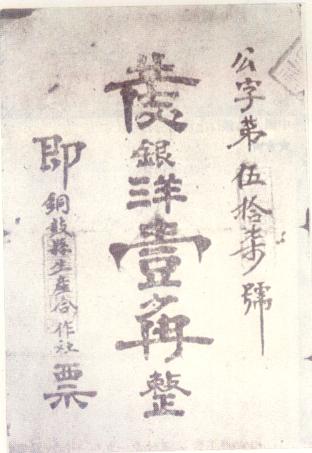 公字第伍拾柒號
發銀洋壹角整
即銅鼓縣生產合作社票